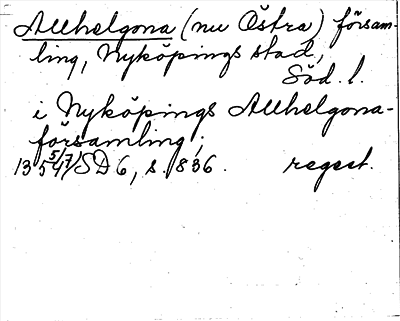 Allhelgona (nu Östra) försam-
ling, Nyköpings stad,
Söd. l.
i Nyköpings Allhelgona-
församling;
1354 5/7/SD 6, s. 836. regest.